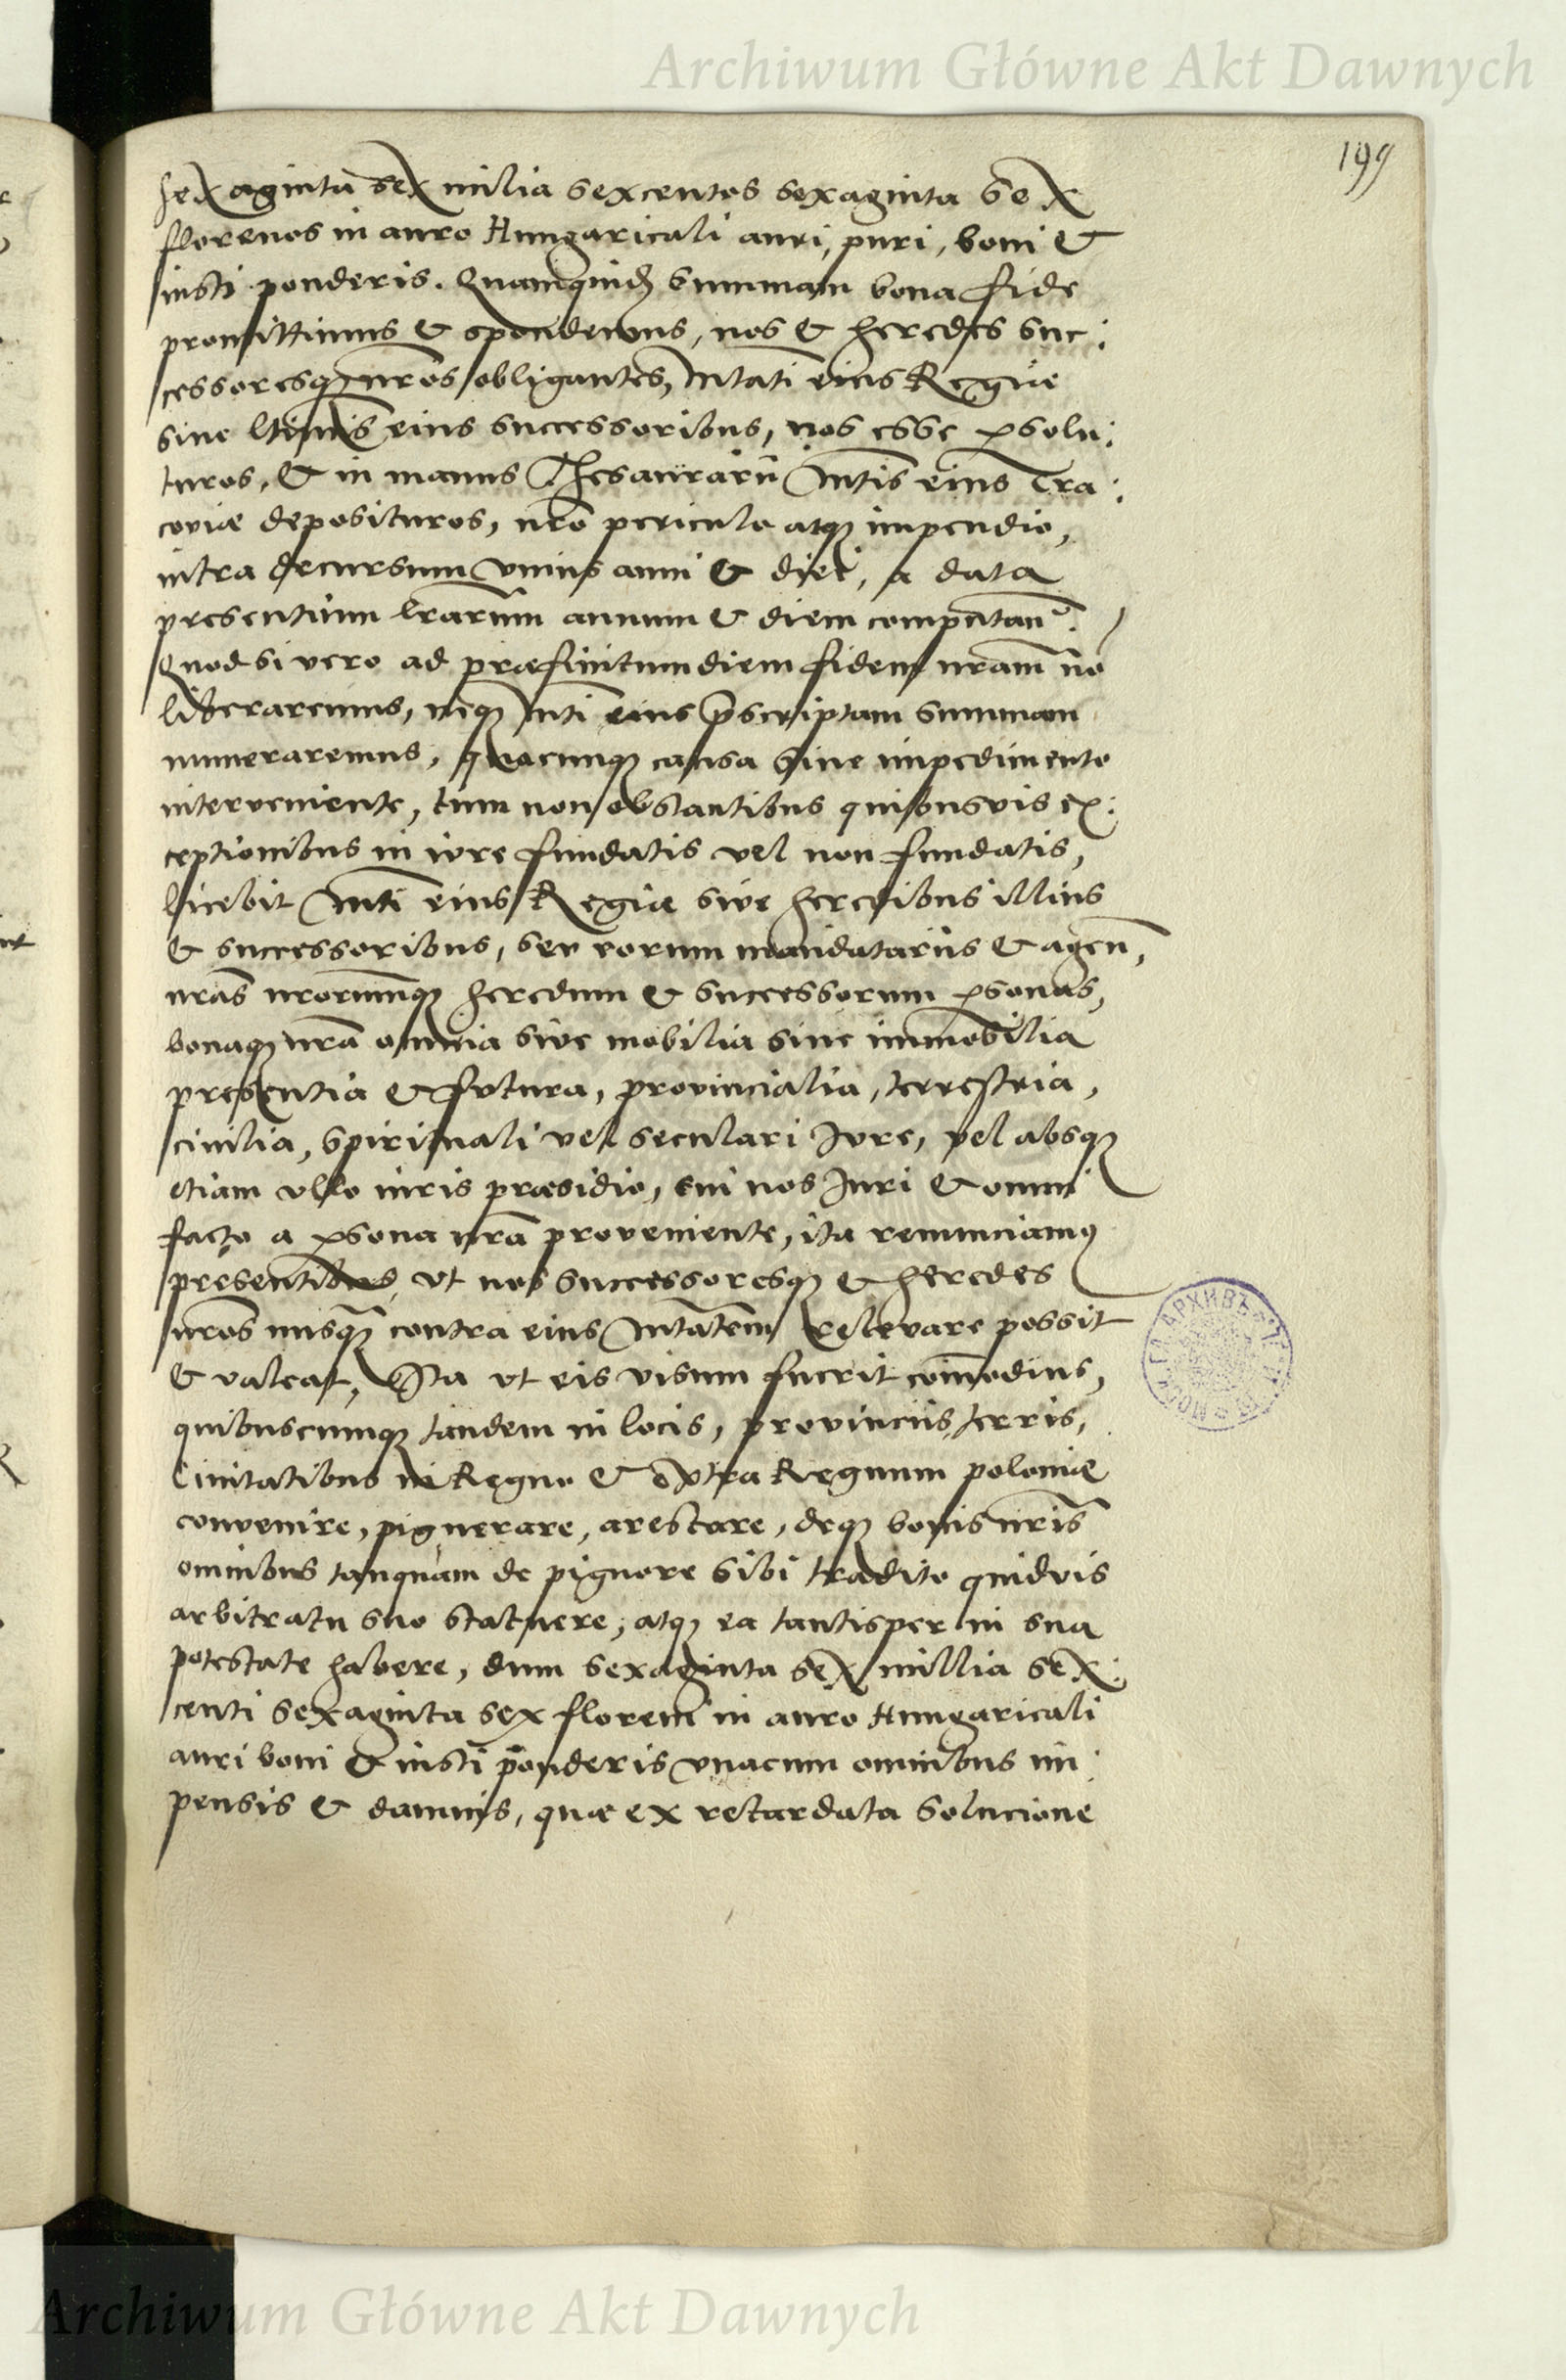 Archiwum Główne Akt Dawnych
199
sexaginta sex milia sexcentos sexaginta sex
florenos in auro Hungaricali auri, puri, boni &
iusti ponderis. Quamquid summam bona fide
promittimus & spondemus, nos & heredes suc:
cessoresq nros obligantes, Mtati eius Regiae
siue ltimis eius successoribus, nos esse psolu:
turos, & in manus Thesaurarii Mtis eius Cra:
coviae deposituros, nro periculo atq impendio,
intra decursum vnius anni & diei, a data
presentium lrarum annum & diem computan.
Quod si vero ad præfinitum diem fidem nram no
liberaremus, neq Mti eius pscriptam summam
numeraremus, quacunq causa siue impedimento
interveniente, tum non obstantibus quibusvis ex:
ceptionibus in iure fundatis vel non fundatis,
licebit Mti eius Regiæ sive heredibus illius
& successoribus, seu eorum mandatariis & agen,
nras nrorumq heredum & successorum psonas,
bonaq nra omnia sive mobilia siue immobilia
presentia & futura, provincialia, terrestria,
ciuilia, spirituali vel seculari Jure, vel absq
etiam vllo iuris præsidio, cui nos Juri & omni
facto a psona nra proveniente, ita renunciamus
presentibus, vt nos successoresq & heredes
nros nusq contra eius Mtatem relevare possit
& valeat, Ita vt eis visum fuerit comodius,
quibuscumq tandem in locis, provinciis, terris,
Ciuitatibus in Regno & extra Regnum poloniæ
convenire, pignerare, arestare, deq bonis nris
omnibus tanquam de pignore sibi tradito quidvis
arbitratu suo statuere, atq ea tantisper in sua
potestate habere, dum sexaginta sex millia sex:
centi sexaginta sex floreni in auro Hungaricali
auri boni & iusti ponderis vnacum omnibus im:
pensis & damnis, quæ ex retardata solucione
Archiwum Główne Akt Dawnych